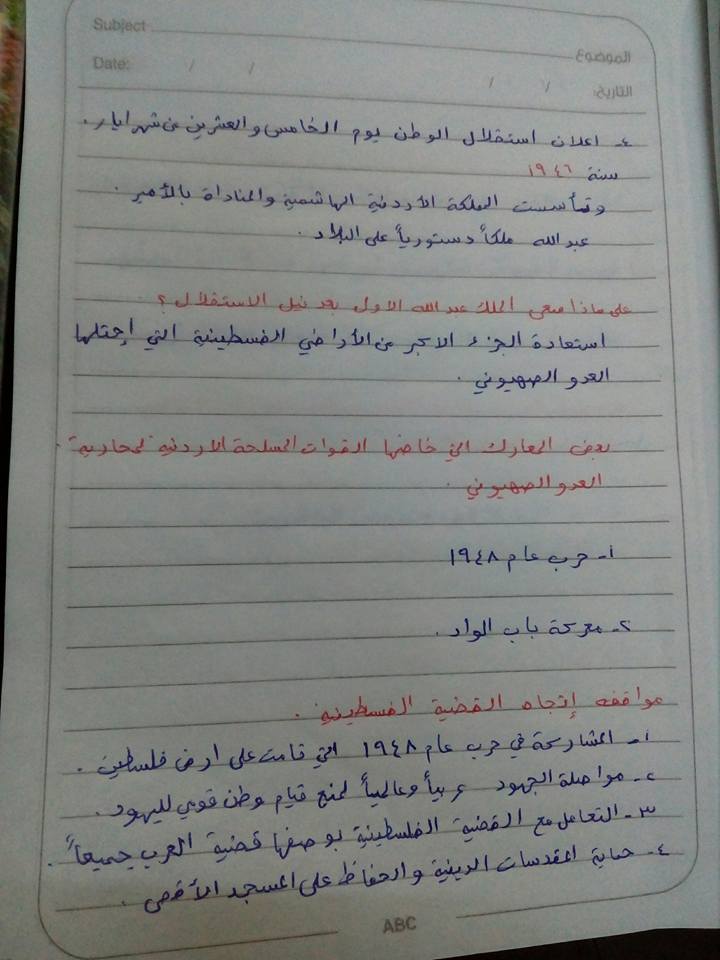 Subject
الموضوع
Date: / /
التاريخ: / /
٤- اعلان استقلال الوطن يوم الخامس والعشرين من شهر ايار.
سنة ١٩٤٦
وتأسست المملكة الأردنية الهاشمية والمناداة بالأمير.
عبد الله ملكاً دستورياً على البلاد.
على ماذا سعى الملك عبد الله الاول بعد نيل الاستقلال؟
استعادة الجزء الاكبر من الأراضي الفسطينية التي إحتلها
العدو الصهيوني.
بعض المعارك التي خاضها القوات المسلحة الاردنية لمحاربة
العدو الصهيوني.
١- حرب عام ١٩٤٨
٢- معركة باب الواد.
مواقفه إتجاه القضية الفسطينية.
١- المشاركة في حرب عام ١٩٤٨ التي قامت على ارض فلسطين.
٢- مواصلة الجهود عربياً وعالمياً لمنع قيام وطن قومي لليهود.
٣- التعامل مع القضية الفلسطينية بوصفها قضية العرب جميعاً.
٤- حماية المقدسات الدينية والحفاظ على المسجد الأقصى.
ABC